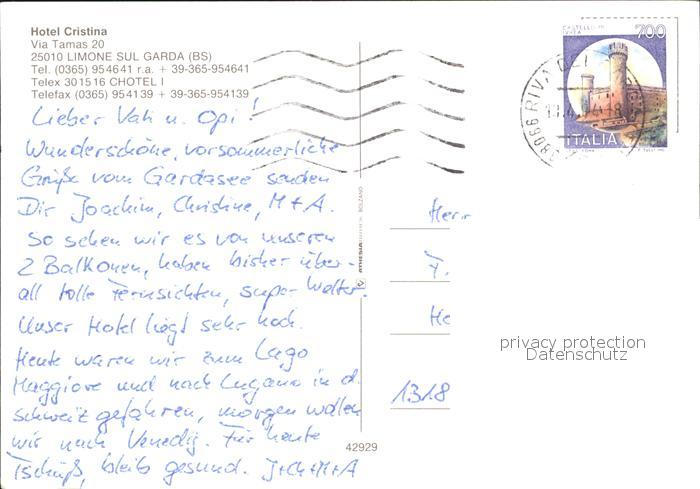 Hotel Cristina
Via Tamas 20
25010 LIMONE SUL GARDA (BS)
Tel. (0365) 954641 r.a. + 39-365-954641
Telex 301516 CHOTEL I
Telefax (0365) 954139 + 39-365-954139
Lieber Vati u. Opi!
Wunderschöne, vorsommerliche
Grüße vom Gardasee senden
Dir Joachim, Christine, M+A.
So sehen wir es von unseren
2 Balkonen, haben bisher über-
all tolle Fernsichten, super Wetter.
Unser Hotel liegt sehr hoch.
Heute waren wir zum Lago
Maggiore und nach Lugano in d.
Schweiz gefahren, morgen wollen
wir nach Venedig. Für heute
Tschüß, bleib gesund. J+Ch+M+A
ATHESIA BOLZANO
42929
CASTELLO DI
IVREA
700
ITALIA
38066 RIVA DEL
Herr
F.
He
1318
privacy protection
Datenschutz